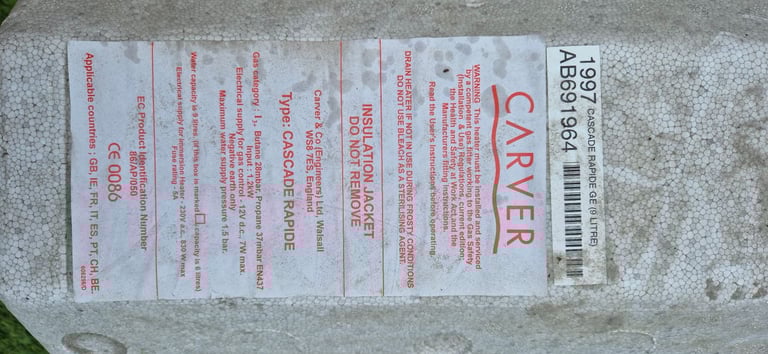 1997 CASCADE RAPIDE GE (9 LITRE)
AB691964
CARVER
WARNING This heater must be installed and serviced
by a competent gas fitter working to the Gas Safety
(Installation & Use) Regulations, current edition;
the Health and Safety at Work Act,and the
Manufacturers fitting instructions.
Read the User's Instructions before operating.
DRAIN HEATER IF NOT IN USE DURING FROSTY CONDITIONS
DO NOT USE BLEACH AS A STERILISING AGENT.
INSULATION JACKET
DO NOT REMOVE
Carver & Co (Engineers) Ltd, Walsall
WS8 7ES, England
Type: CASCADE RAPIDE
Gas category : I3+ Butane 28mbar, Propane 37mbar EN437
Input : 1.2kW
Electrical supply for gas control - 12V d.c., 7W max.
Negative earth only
Maximum water supply pressure 1.5 bar.
Water capacity is 9 litres, (if this box is marked capacity is 6 litres)
Electrical supply for immersion heater - 230V a.c., 830 W max
Fuse rating : 5A
EC Product Identification Number
86/AP/050
CE 0086
Applicable countries : GB, IE, FR, IT, ES, PT, CH, BE.